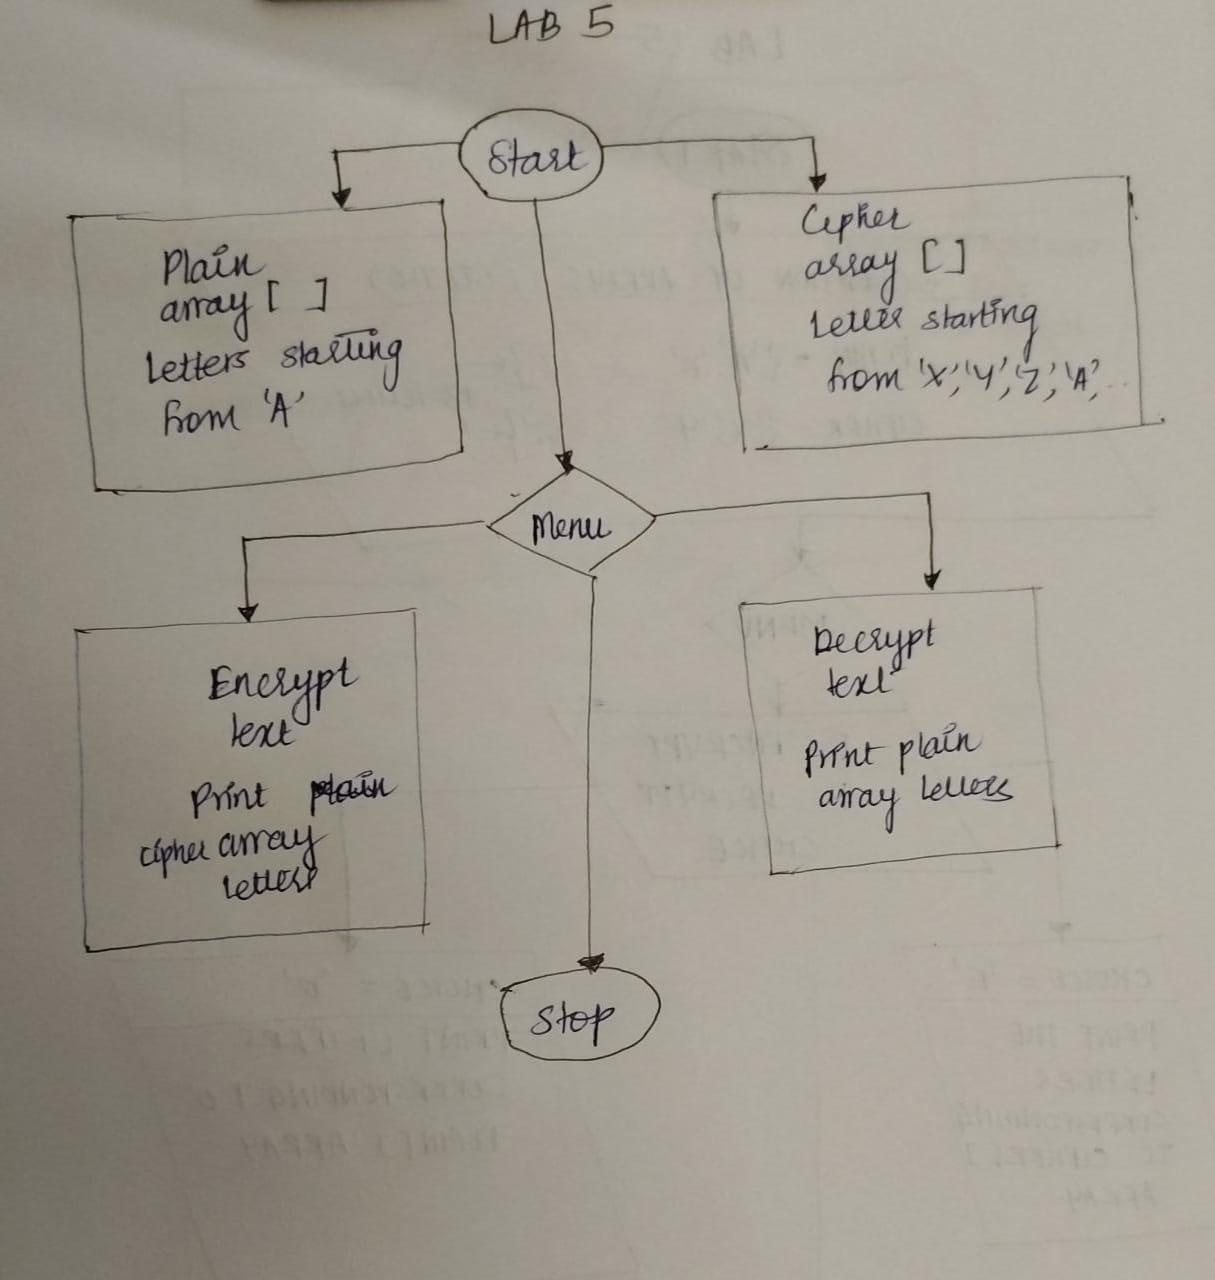 LAB 5
Start
Plain
array [ ]
Letters starting
from 'A'
Cipher
array [ ]
Letter starting
from 'X','Y','Z','A',..
Menu
Encrypt
text
Print plain
cipher array
letters
Decrypt
text
Print plain
array letters
Stop